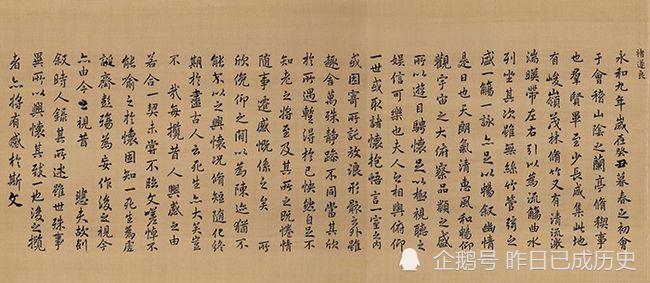 褚遂良
永和九年歲在癸丑暮春之初會
于會稽山陰之蘭亭脩稧事
也羣賢畢至少長咸集此地
有峻嶺茂林脩竹又有清流激
湍暎帶左右引以為流觴曲水
列坐其次雖無絲竹管弦之
盛一觴一詠亦足以暢敘幽情
是日也天朗氣清惠風和暢仰
觀宇宙之大俯察品類之盛
所以遊目騁懷足以極視聽之
娛信可樂也夫人之相與俯仰
一世或取諸懷抱悟言一室之內
或因寄所託放浪形骸之外雖
趣舍萬殊靜躁不同當其欣
於所遇蹔得於己怏然自足不
知老之將至及其所之既惓情
隨事遷感慨係之矣 所
欣俛仰之間以為陳迹猶不
能不以之興懷況脩短隨化終
期於盡古人云死生亦大矣豈
不 哉每攬昔人興感之由
若合一契未嘗不臨文嗟悼不
能喻之於懷固知一死生為虛
誕齊彭殤為妄作後之視今
亦由今之視昔 悲夫故列
敘時人錄其所述雖世殊事
異所以興懷其致一也後之攬
者亦將有感於斯文
企鹅号 昨日已成历史